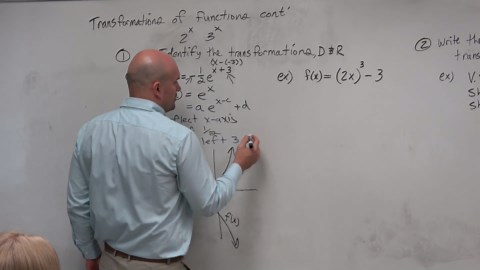 Transformations of functions cont'
2^x 3^x
① Identify the transformations, D & R
(x-(-x))
= -½e^(x+3)
= e^x
= a e^(x-c) + d
reflect x-axis
½
left 3
f(x)
ex) f(x) = (2x)³ - 3
② Write the
trans
ex) V.
Sh
Sh